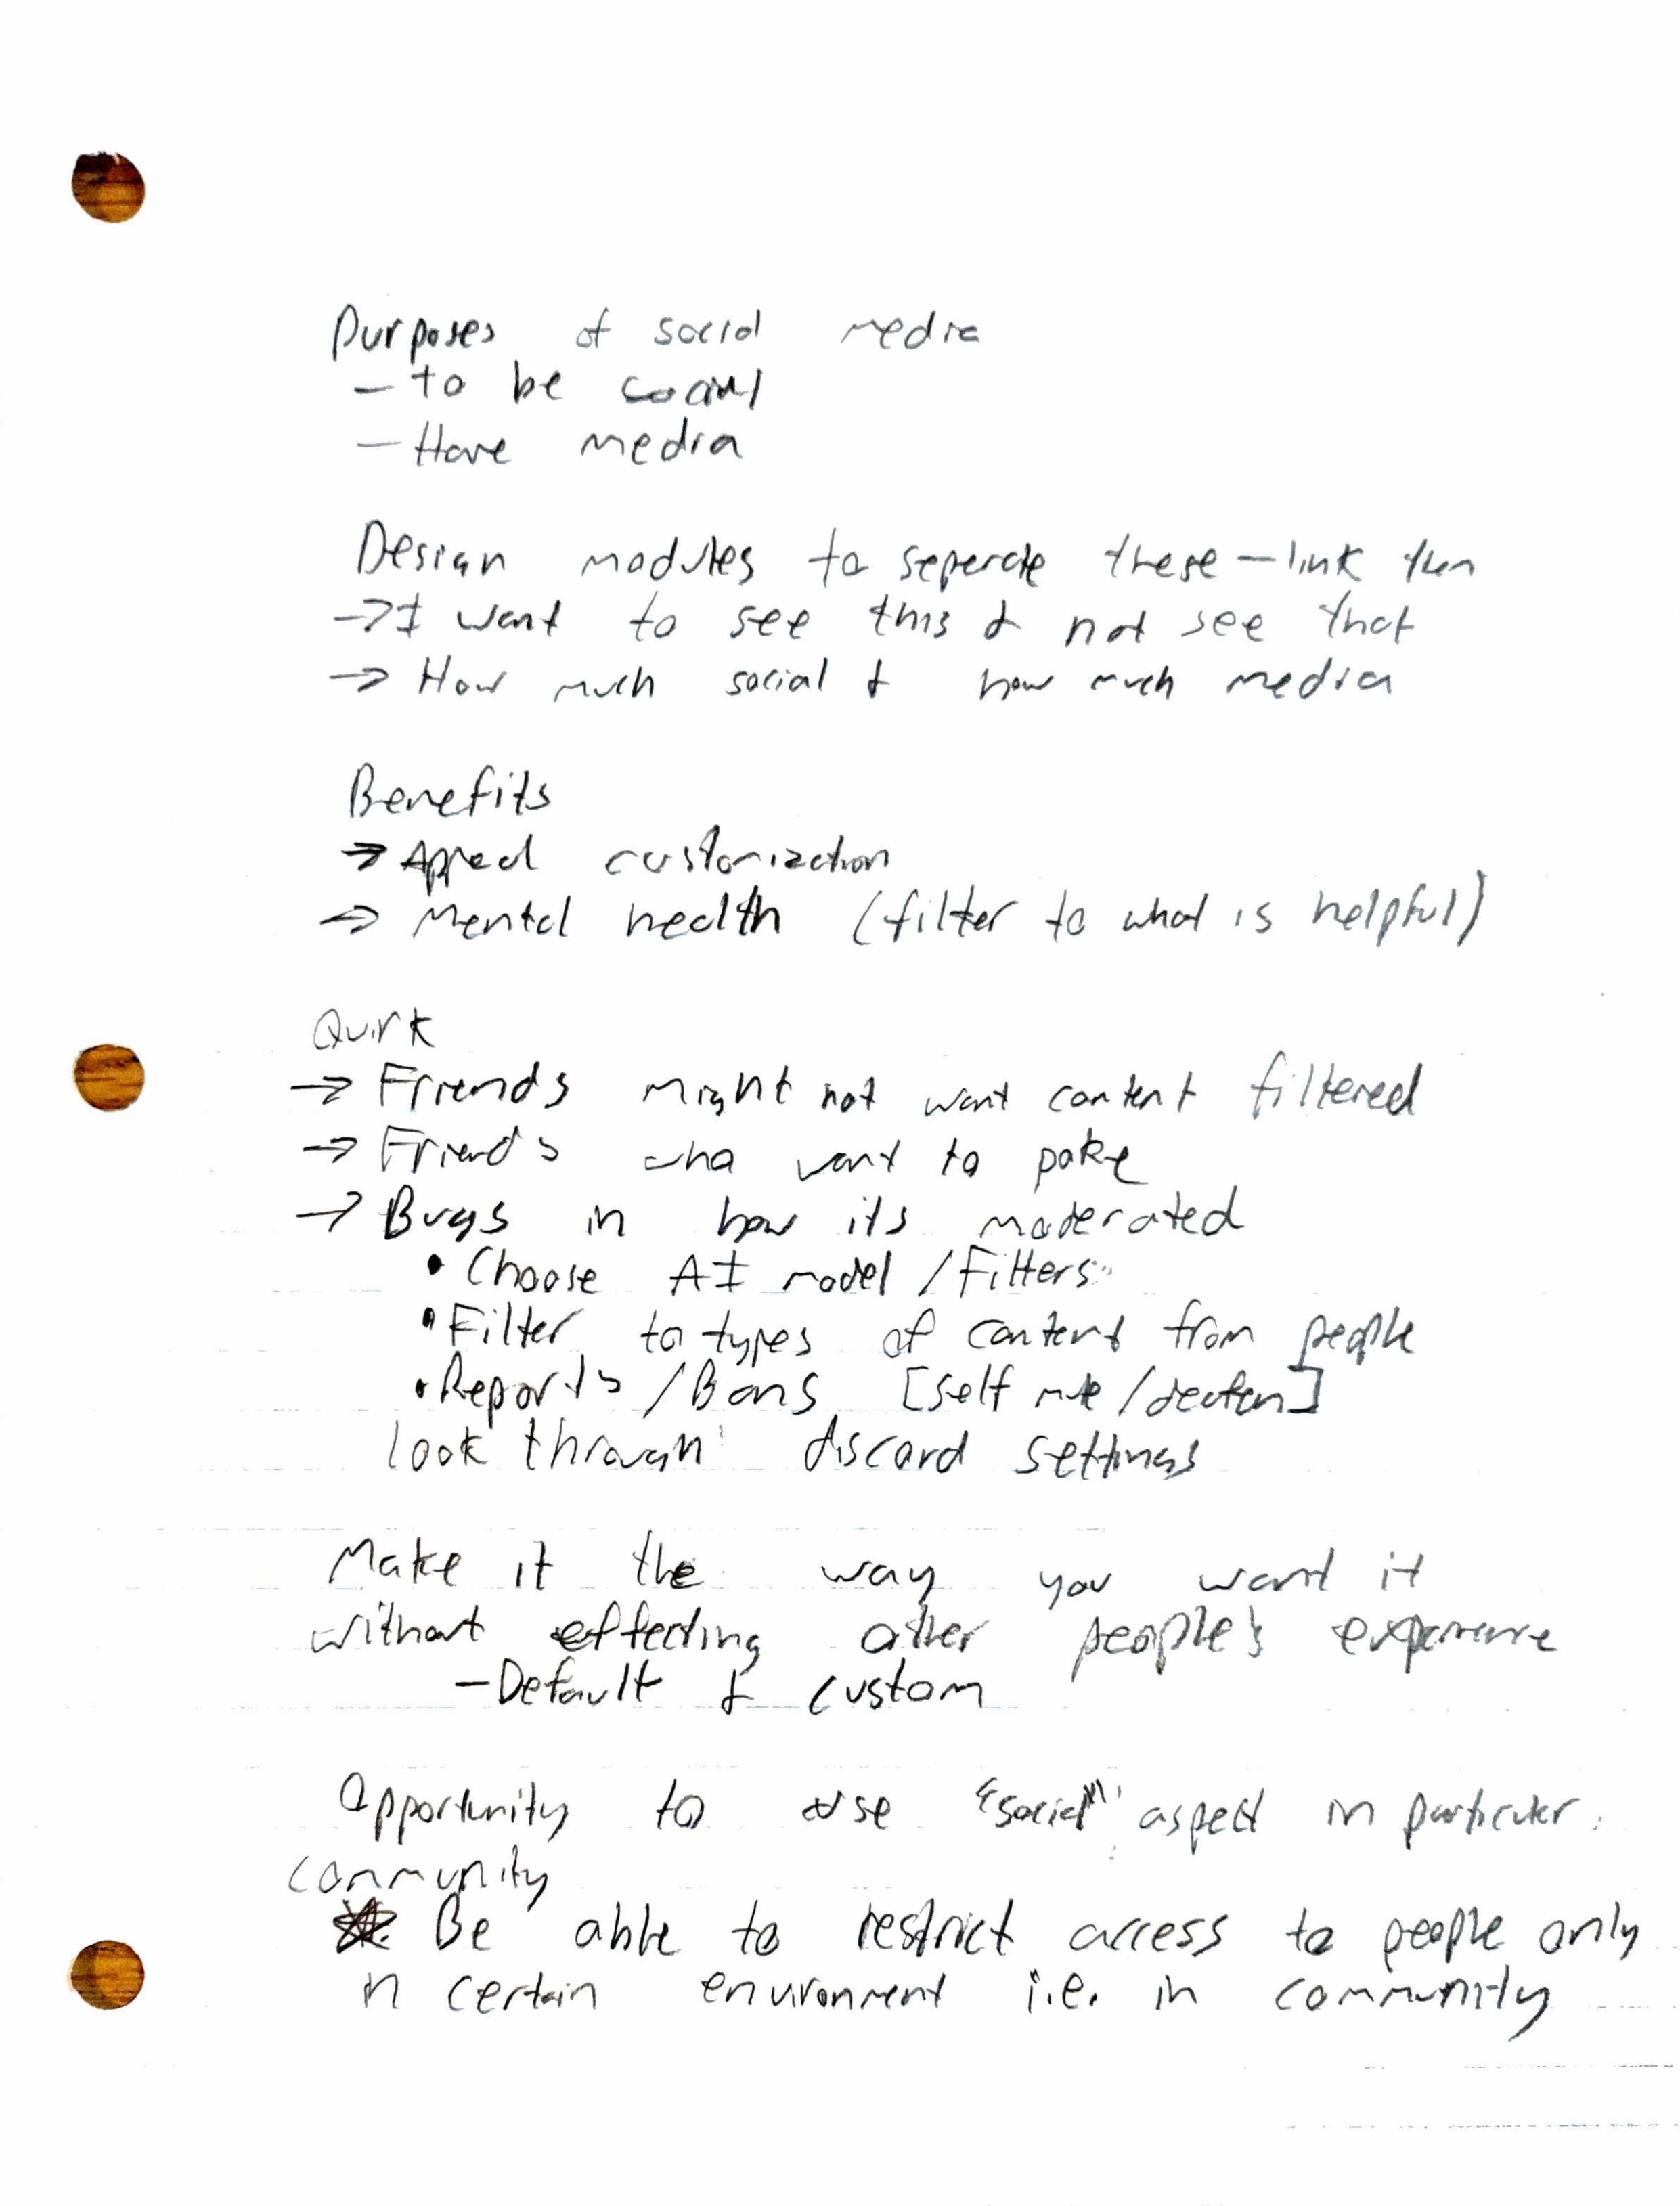 Purposes of social media
- to be social
- Have media
Design modules to seperate these - link then
-> I want to see this & not see that
-> How much social & how much media
Benefits
-> Appeal customization
-> Mental health (filter to what is helpful)
Quirk
-> Friends might not want content filtered
-> Friends who want to poke
-> Bugs in how its moderated
• Choose AI model / Filters
• Filter to types of content from people
• Reports / Bans [self mute /]
look through discord settings
Make it the way you want it
without effecting other people's experience
- Default & custom
Opportunity to use "social" aspect in particular
community
Be able to restrict access to people only
in certain environment i.e. in community